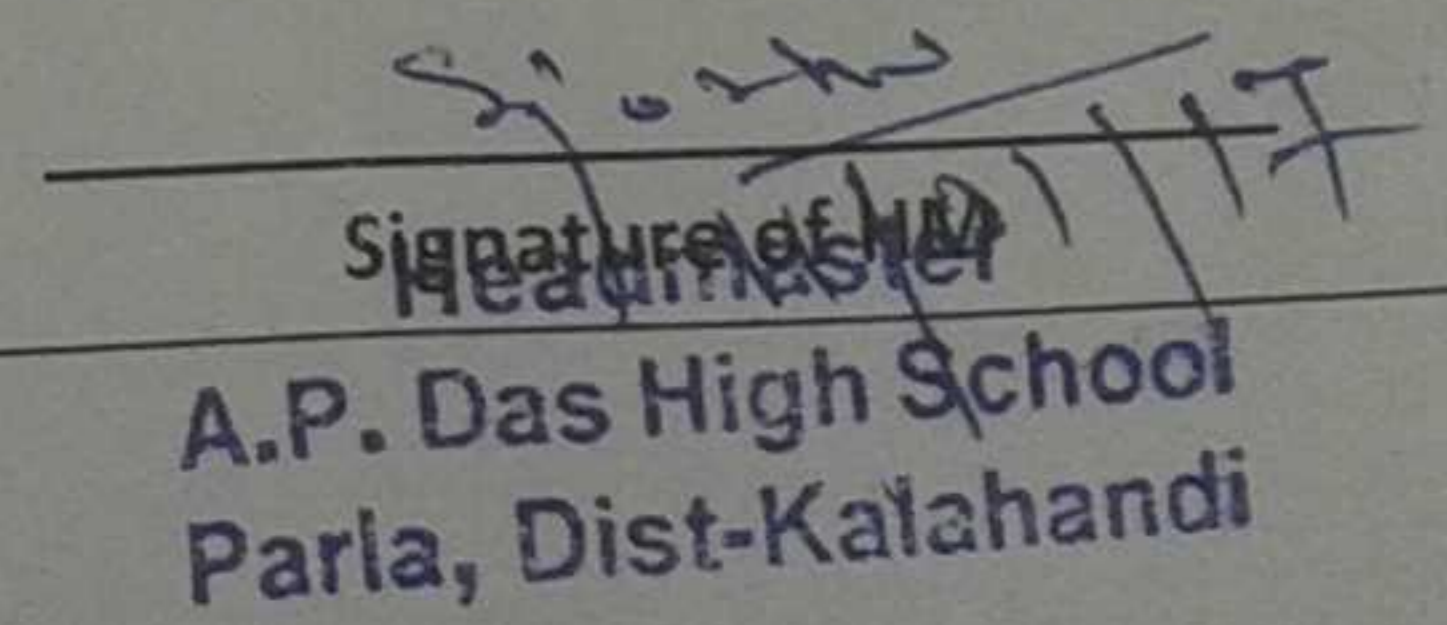 Signature of HM
Headmaster
A.P. Das High School
Parla, Dist-Kalahandi